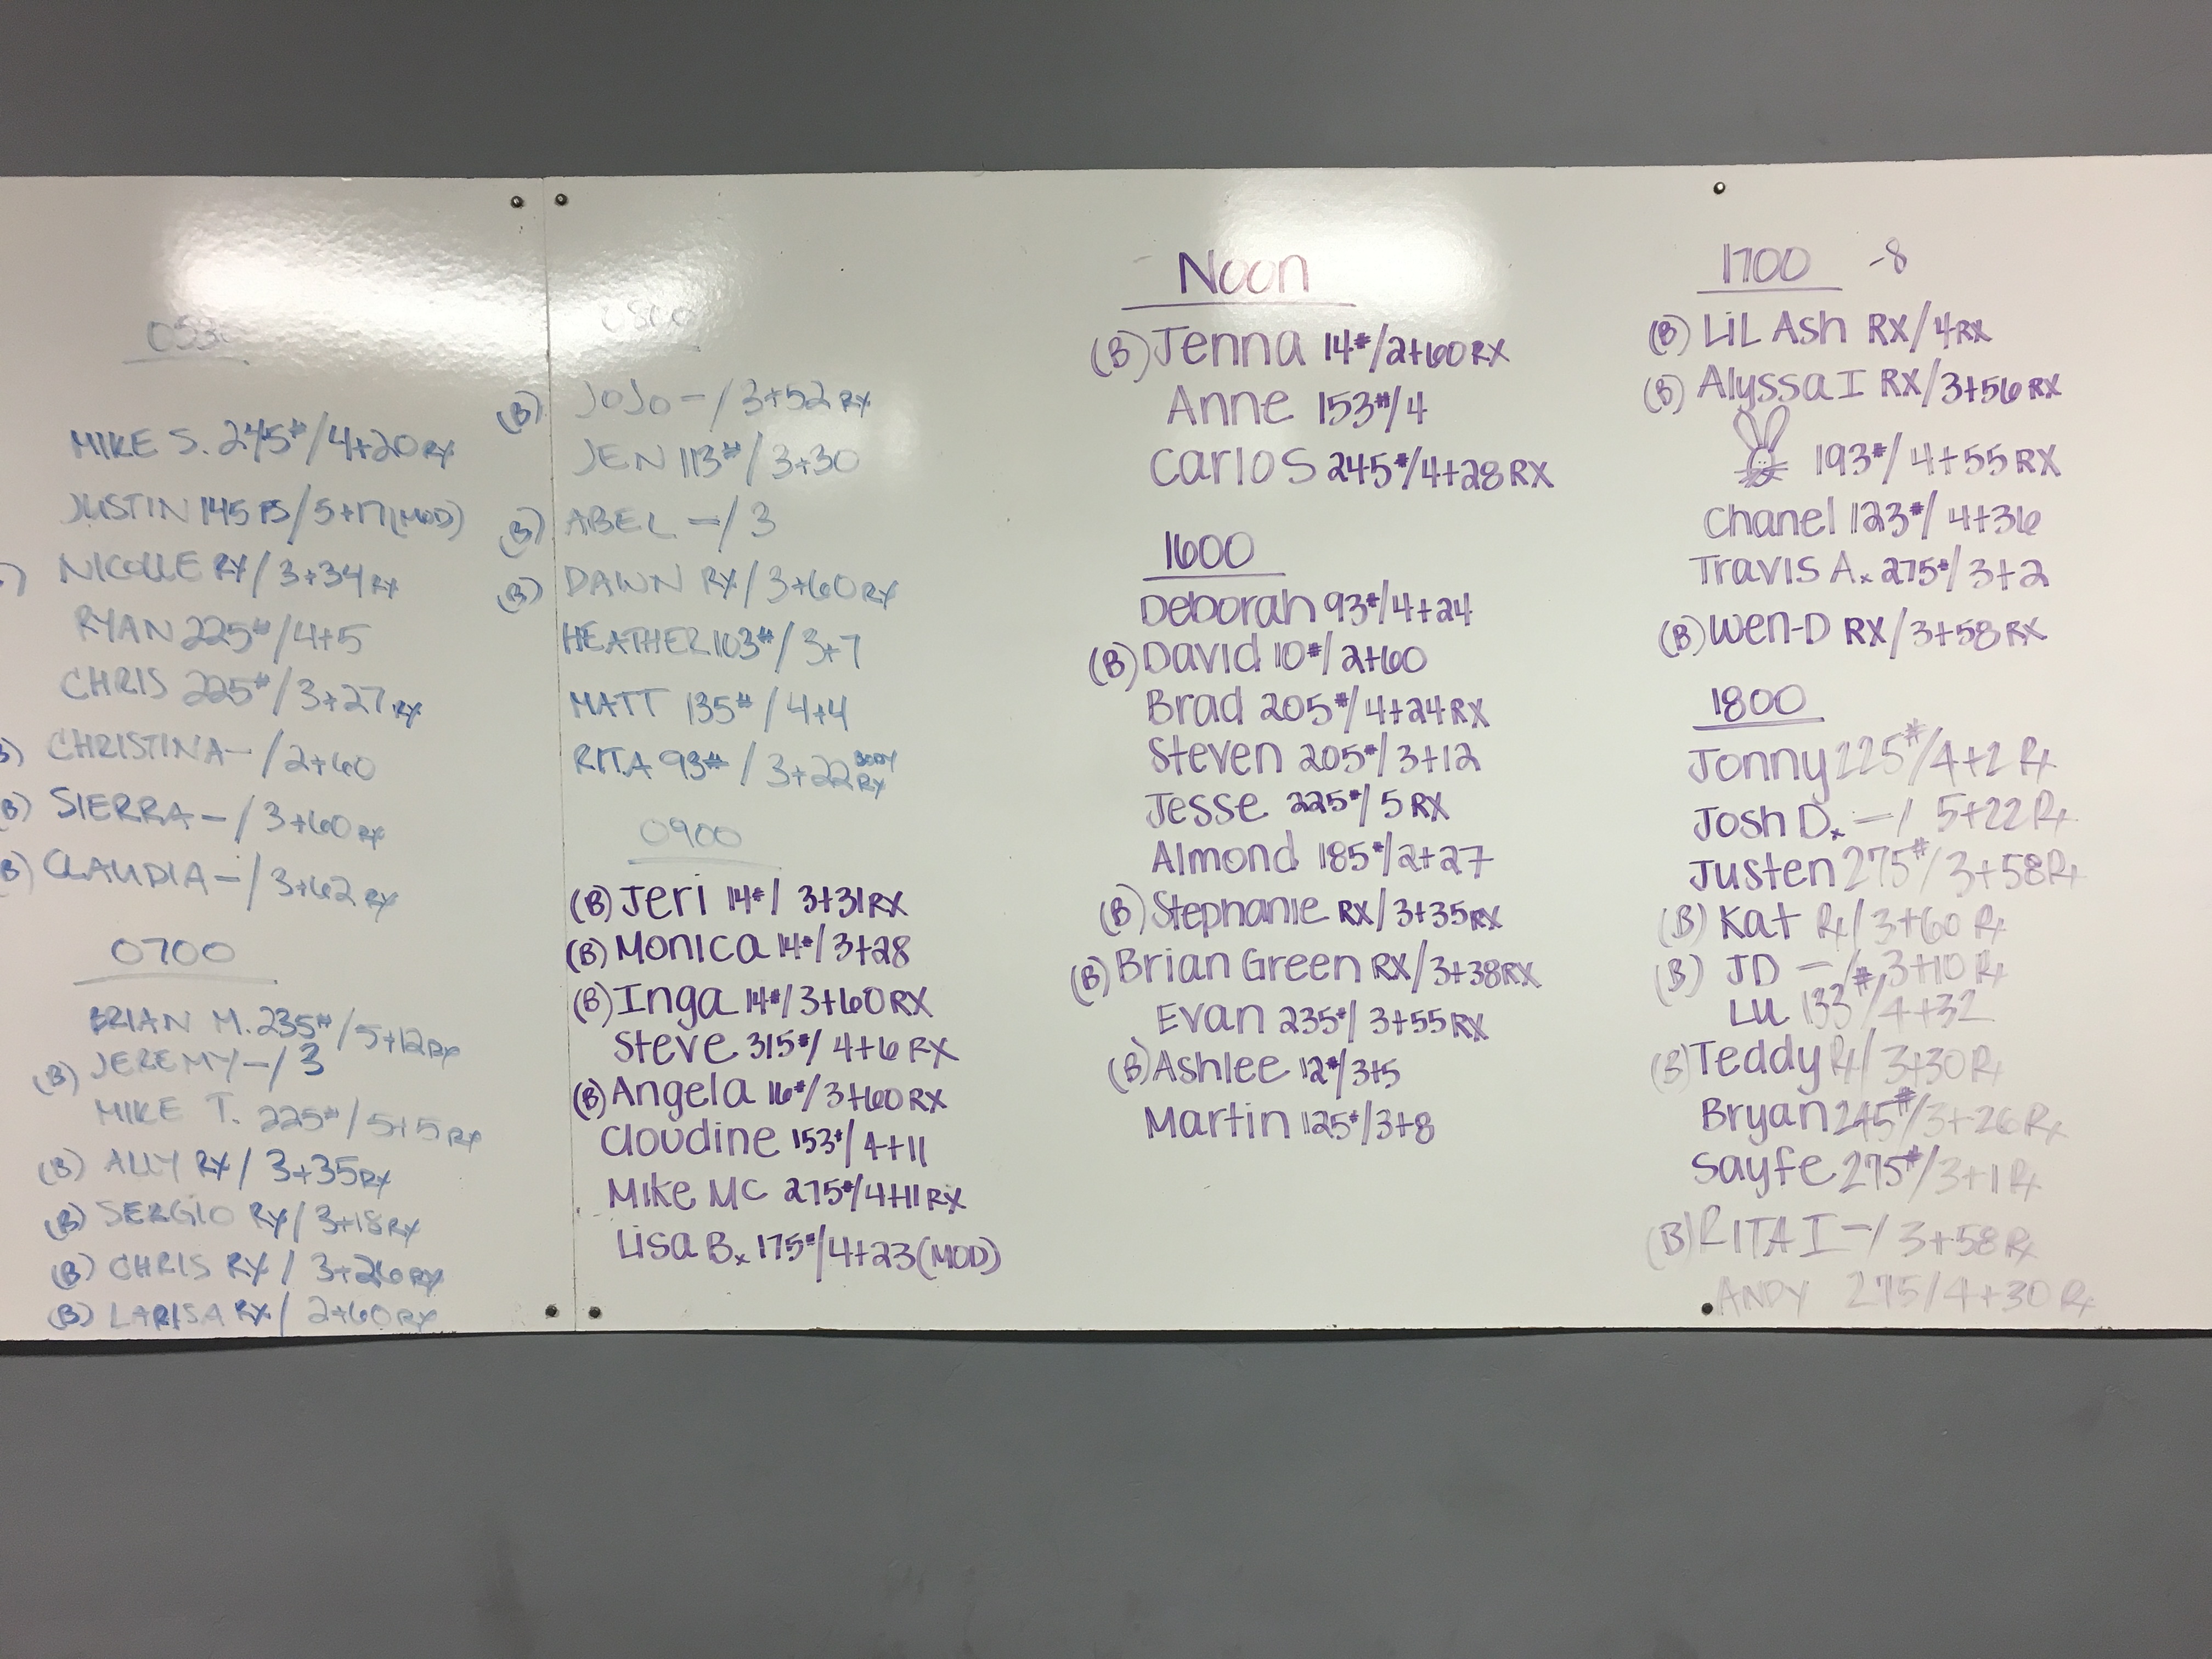 0530
MIKE S. 245#/4+20 RX
JUSTIN 145 PS/5+17(MOD)
NICOLLE RX/3+34 RX
RYAN 225#/4+5
CHRIS 225#/3+27 RX
B) CHRISTINA-/2+60
B) SIERRA-/3+60 RX
B) CLAUDIA-/3+62 RX
0700
BRIAN M. 235#/5+12 RX
(B) JEREMY-/3
MIKE T. 225#/5+5 RX
(B) ALLY RX/3+35 RX
(B) SERGIO RX/3+18 RX
(B) CHRIS RX/3+26 RX
(B) LARISA RX/2+60 RX
0800
(B) JOJO-/3+52 RX
JEN 113#/3+30
(B) ABEL-/3
(B) DAWN RX/3+60 RX
HEATHER 103#/3+7
MATT 135#/4+4
RITA 93#/3+22 BODY RX
0900
(B) Jeri 14#/3+31 RX
(B) Monica 14#/3+28
(B) Inga 14#/3+60 RX
Steve 315#/4+6 RX
(B) Angela 16#/3+60 RX
Cloudine 153#/4+11
Mike MC 275#/4+11 RX
Lisa B. 175#/4+23 (MOD)
Noon
(B) Jenna 14#/2+60 RX
Anne 153#/4
Carlos 245#/4+28 RX
1600
Deborah 93#/4+24
(B) David 10#/2+60
Brad 205#/4+24 RX
Steven 205#/3+12
Jesse 225#/5 RX
Almond 185#/2+27
(B) Stephanie RX/3+35 RX
(B) Brian Green RX/3+38 RX
Evan 235#/3+55 RX
(B) Ashlee 12#/3+5
Martin 125#/3+8
1700 -8
(B) LiL Ash RX/4 RX
(B) Alyssa I RX/3+56 RX
193#/4+55 RX
Chanel 123#/4+36
Travis A. 275#/3+2
(B) Wen-D RX/3+58 RX
1800
Jonny 225#/4+2 Rx
Josh D. -/5+22 Rx
Justen 275#/3+58 Rx
(B) Kat Rx/3+60 Rx
(B) JD -/3+10 Rx
LU 133#/4+32
(B) Teddy Rx/3+30 Rx
Bryan 245#/3+26 Rx
Sayfe 275#/3+1 Rx
(B) RITA I -/3+58 Rx
ANDY 275/4+30 Rx